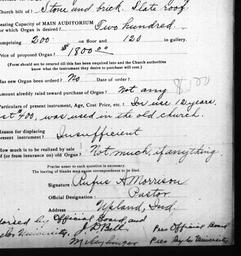 Church built of Stone and brick. Slate roof.
Seating Capacity of MAIN AUDITORIUM
for which Organ is desired? Two hundred
comprising 200 on floor and 120 in gallery.
Price of proposed Organ? $1800.00
(Form should not be returned till this has been required into and the Church authorities
know what the instrument they desire to purchase will cost.)
Has new Organ been ordered? No Date of order?
Amount already raised toward purchase of Organ? Not any
Particulars of present instrument, Age, Cost Price, etc. In use 12 years.
Cost 400, was used in the old church.
Reason for displacing
present instrument? Insufficient
How much is to be realized by sale
of (or from insurance on) old Organ? Not much, if anything.
Precise answer to each question is necessary.
The leaving of blanks never corresponds to be required.
Signature Rufus A Morrison
Official Designation: Pastor
Address Upland, Ind
Official Board, and
University. J. D. Bell Pres Official Board
Pres University